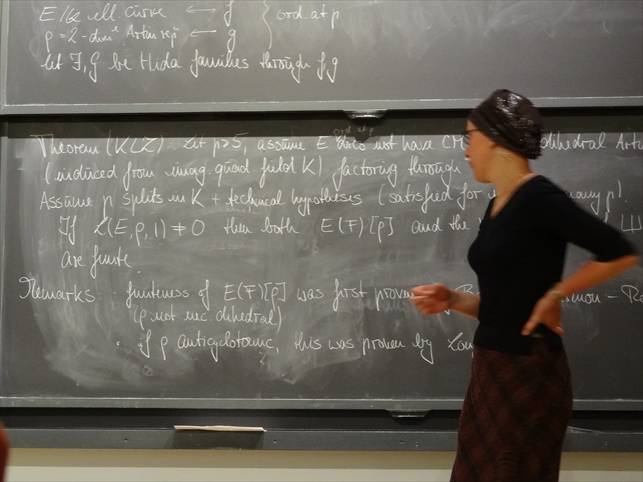 E/Q ell. curve ⟷ f } ord. at p
ρ = 2-dim'l Artin rep ⟷ g
let F, G be Hida families through f, g
Theorem (KLZ) Let p≥5, assume E does not have CM dihedral Arti
ord. at p
(induced from imag. quad field K) factoring through
Assume p splits in K + technical hypotheses (satisfied for many p).
If L(E,ρ,1) ≠ 0 then both E(F)[ρ] and the Ш
are finite.
Remarks · finiteness of E(F)[ρ] was first proven
(ρ not nec. dihedral)
· If ρ anticyclotomic, this was proven by